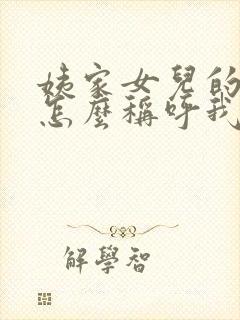 姨家女兒的
怎麼稱呼我
解學智